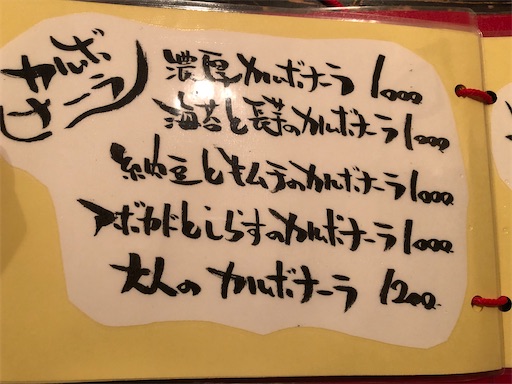 カルボナーラ
濃厚カルボナーラ 1000
海苔と長芋のカルボナーラ 1000
納豆とキムチのカルボナーラ 1000
アボカドとしらすのカルボナーラ 1000
大人のカルボナーラ 1200